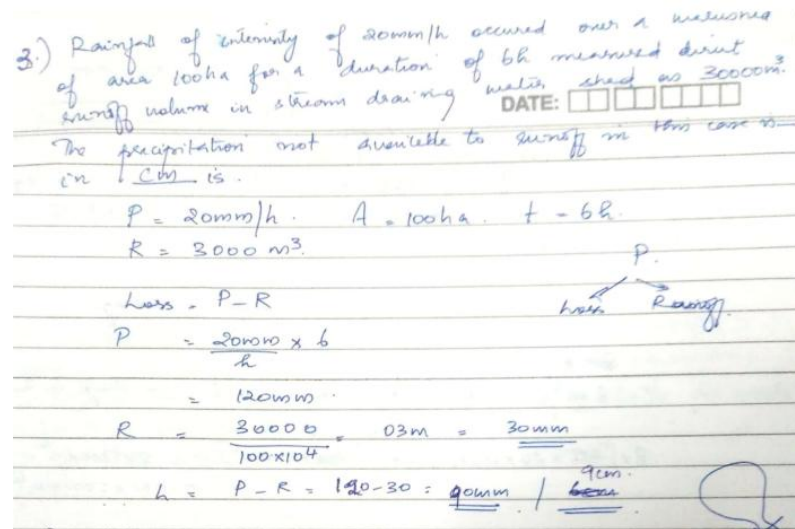 3.) Rainfall of intensity of 20mm/h occured over a watershed
of area 100ha for a duration of 6h measured direct
runoff volume in stream draining water shed as 30000m³.
DATE:
The precipitation not available to runoff in this case is
in cm is.
P = 20mm/h. A = 100ha. t = 6h.
R = 3000 m³.
P.
Loss Runoff.
Loss = P-R
P = 20mm/h × 6
= 120mm.
R = 30000/100×10⁴ = 03m = 30mm
L = P-R = 120-30 = 90mm / 9cm.